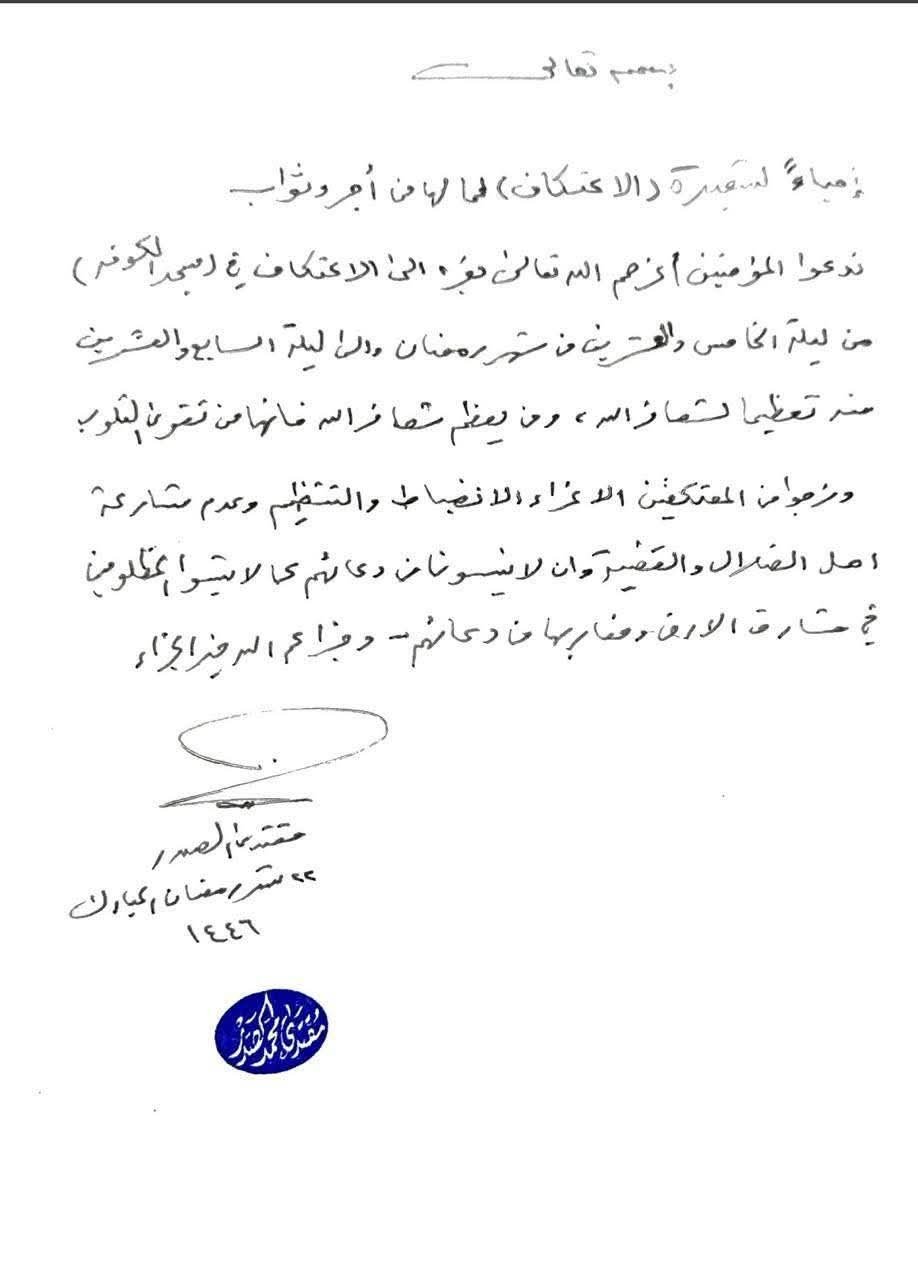 بسمه تعالى
إحياءً لشعيرة (الاعتكاف) لما لها من أجر وثواب
ندعوا المؤمنين أعزهم الله تعالى بعزه الى الاعتكاف في (مسجد الكوفه)
من ليلة الخامس والعشرين من شهر رمضان والى ليلة السابع والعشرين
منه تعظيما لشعائر الله ، ومن يعظم شعائر الله فانها من تقوى القلوب
ونرجوا من المعتكفين الاعزاء الانضباط والتنظيم وعدم مشارعة
اهل الضلال وان لا ينسونا من دعائهم كما لا ينسوا المظلومين
في مشارق الارض ومغاربها من دعائهم - وجزاهم الله خير الجزاء
مقتدى الصدر
٢٢ شهر رمضان المبارك
١٤٤٦
مقتدى محمد الصدر